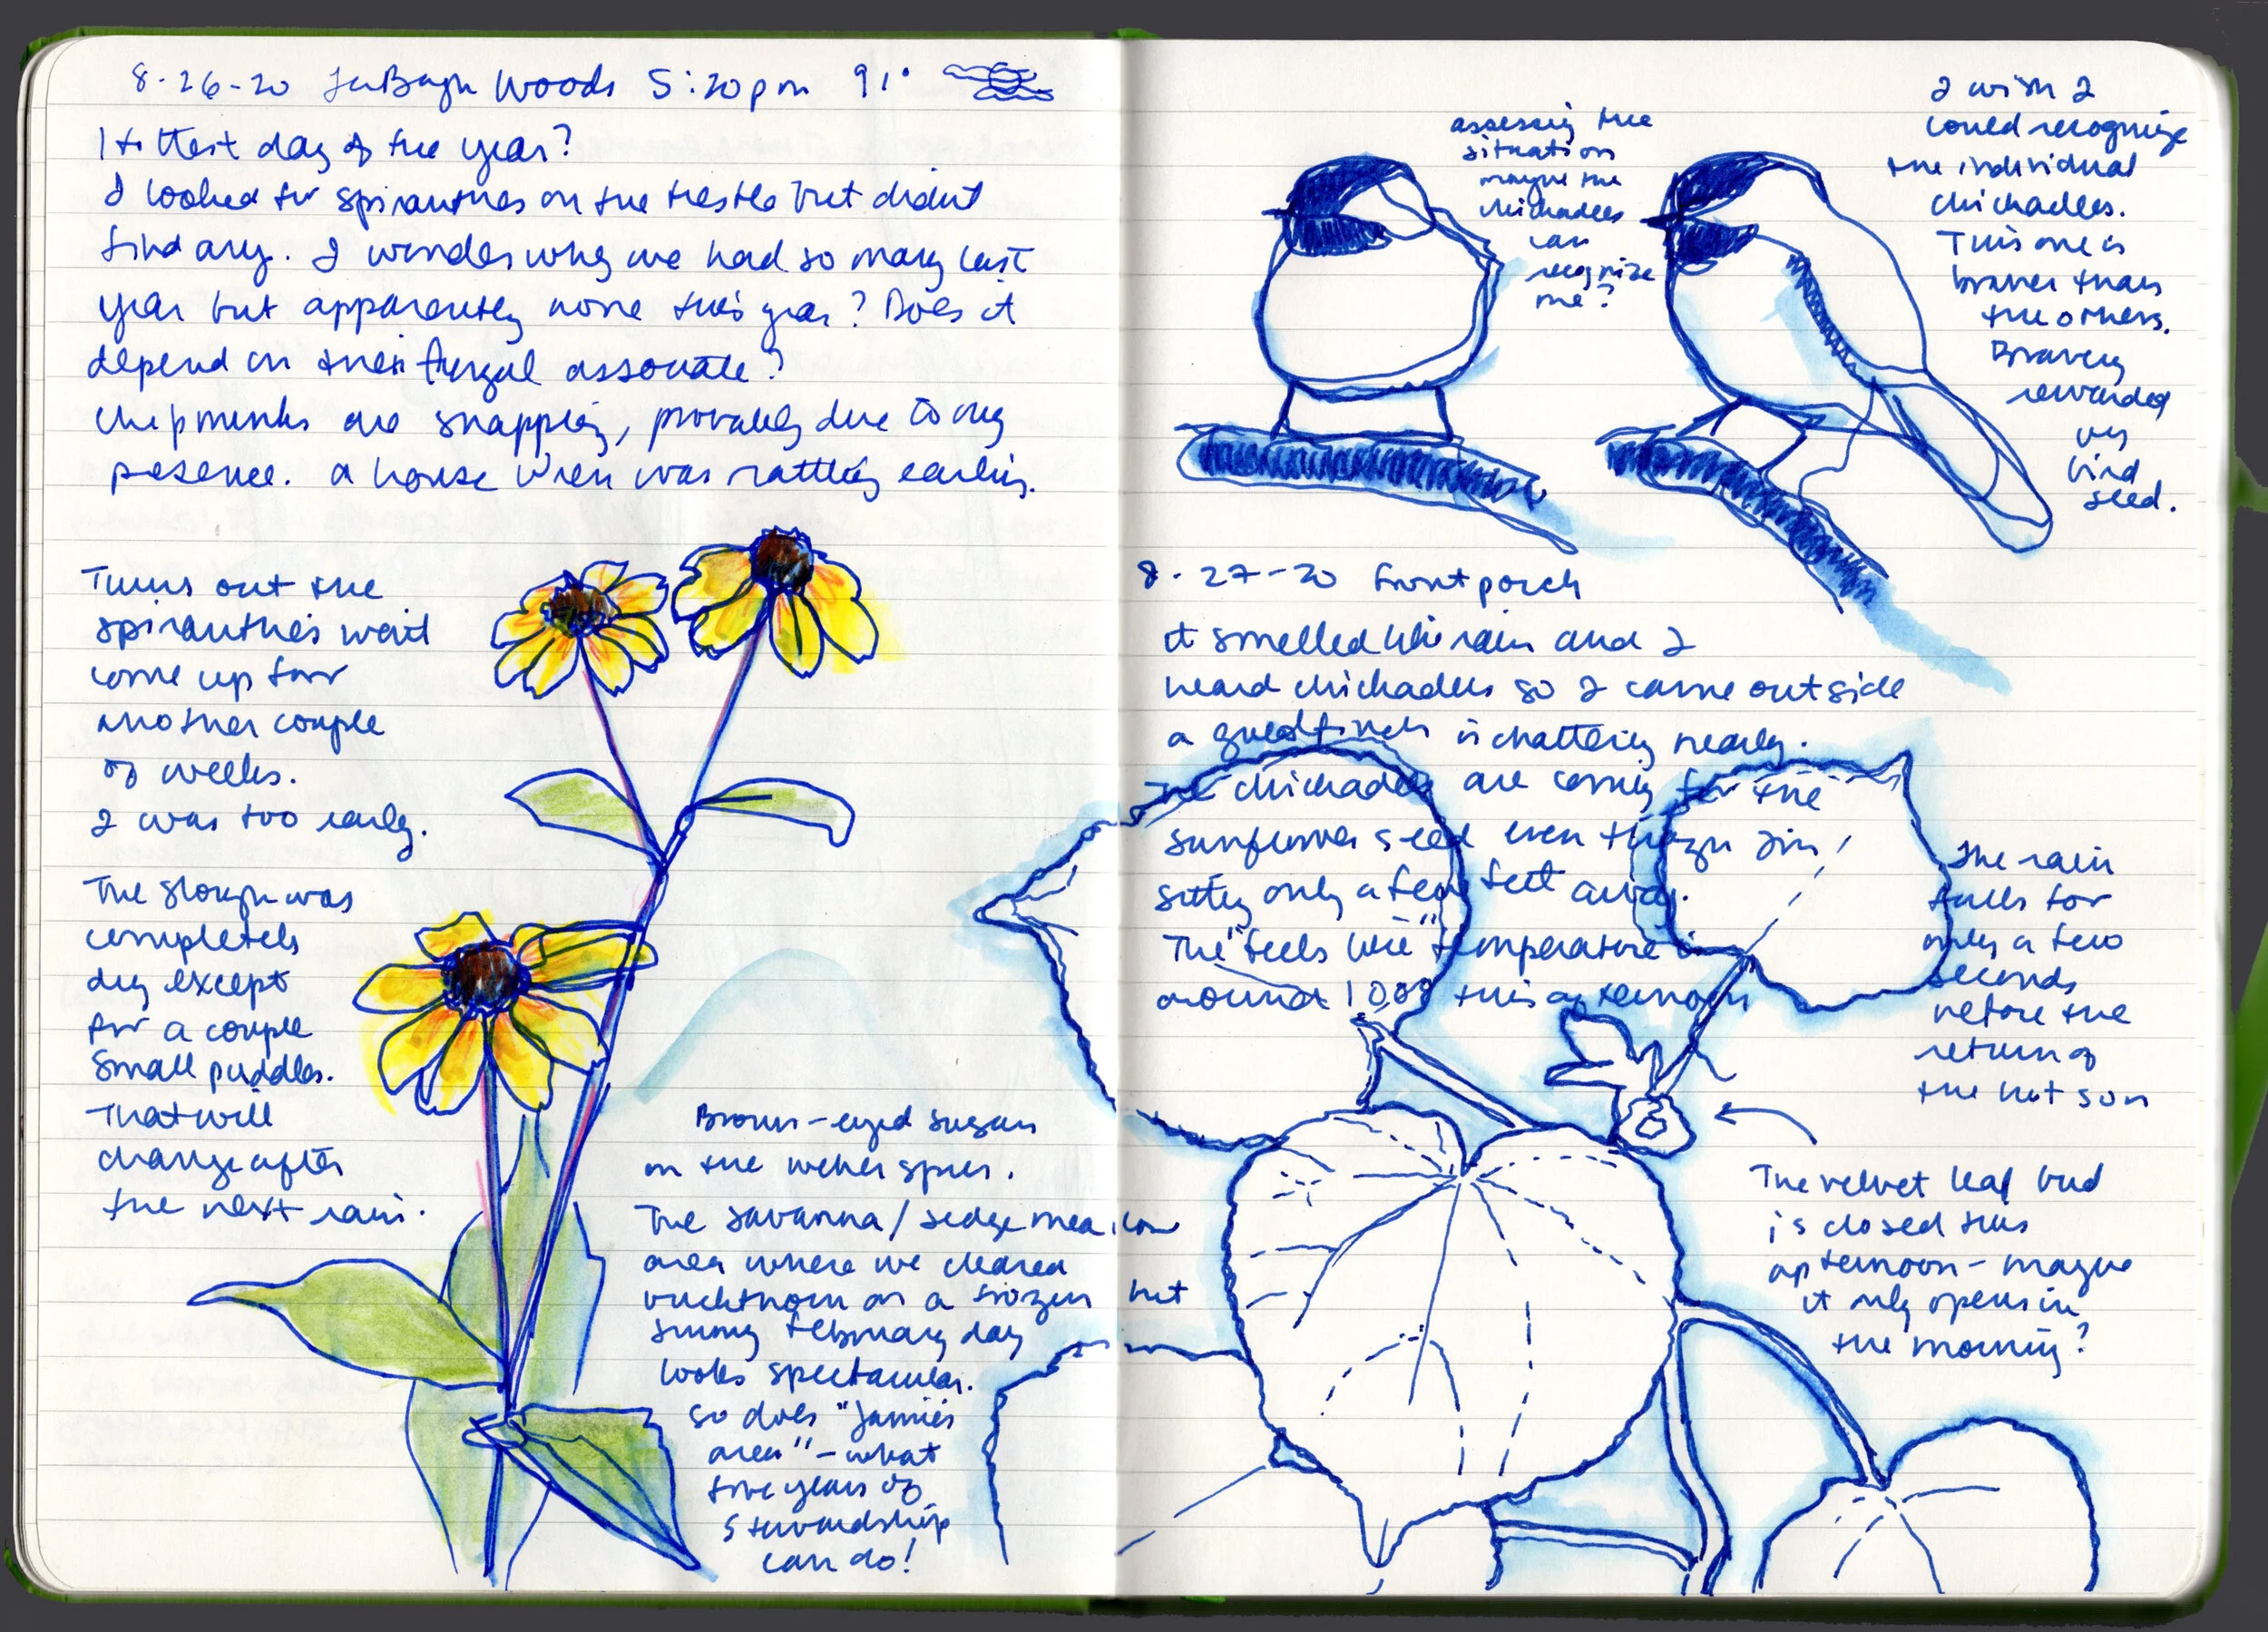 8-26-20 LaBagh Woods 5:20pm 91°
Hottest day of the year?
I looked for spiranthes on the trestle but didnt
find any. I wonder why we had so many last
year but apparently none this year? Does it
depend on their fungal associate?
chipmunks are snapping, probably due to my
presence. a house wren was rattling earlier.
Turns out the
spiranthes wont
come up for
another couple
of weeks.
I was too early.
The slough was
completely
dry except
for a couple
small puddles.
That will
change after
the next rain.
Brown-eyed susan
on the weber spur.
The savanna/sedge meadow
area where we cleared
buckthorn on a frozen but
sunny february day
looks spectacular.
so does "Jamie's
area" - what
five years of
stewardship
can do!
assessing the
situation
maybe the
chickadees
can
recognize
me?
I wish I
could recognize
the individual
chickadees.
This one is
braver than
the others.
Bravery
rewarded
by
bird
seed.
8-27-20 front porch
it smelled like rain and I
heard chickadees so I came outside
a goldfinch is chattering nearby.
The chickadees are coming for the
sunflower seed even though I'm
sitting only a few feet away.
The "feels like" temperature is
around 100° this afternoon
The rain
falls for
only a few
seconds
before the
return of
the hot sun
The velvet leaf bud
is closed this
afternoon - maybe
it only opens in
the morning?